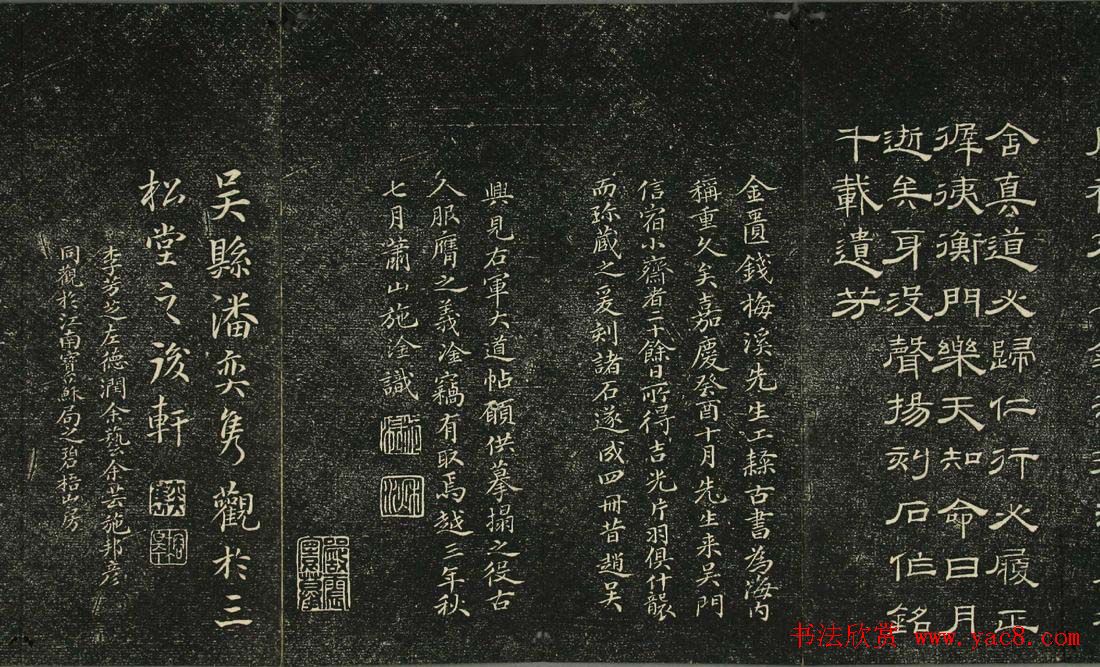 舍真道必歸仁行必履正
遲洟衡門樂天知命日月
逝矣身没聲揚刻石作銘
千載遺芳
金匱錢梅溪先生工隸古書為海内
稱重久矣嘉慶癸酉十月先生来吴門
信宿小齋者二十餘日所得吉光片羽俱什襲
而珎藏之爰刻諸石遂成四冊昔趙吴
興見右軍大道帖願供摹搨之役古
人服膺之義淦竊有取焉越三年秋
七月蕭山施淦識
吴縣潘奕隽觀於三
松堂之後軒
李芳芝左德潤余藝余芸施邦彦
同觀於江南寶蘇局之碧梧山房
书法欣赏 www.yac8.com